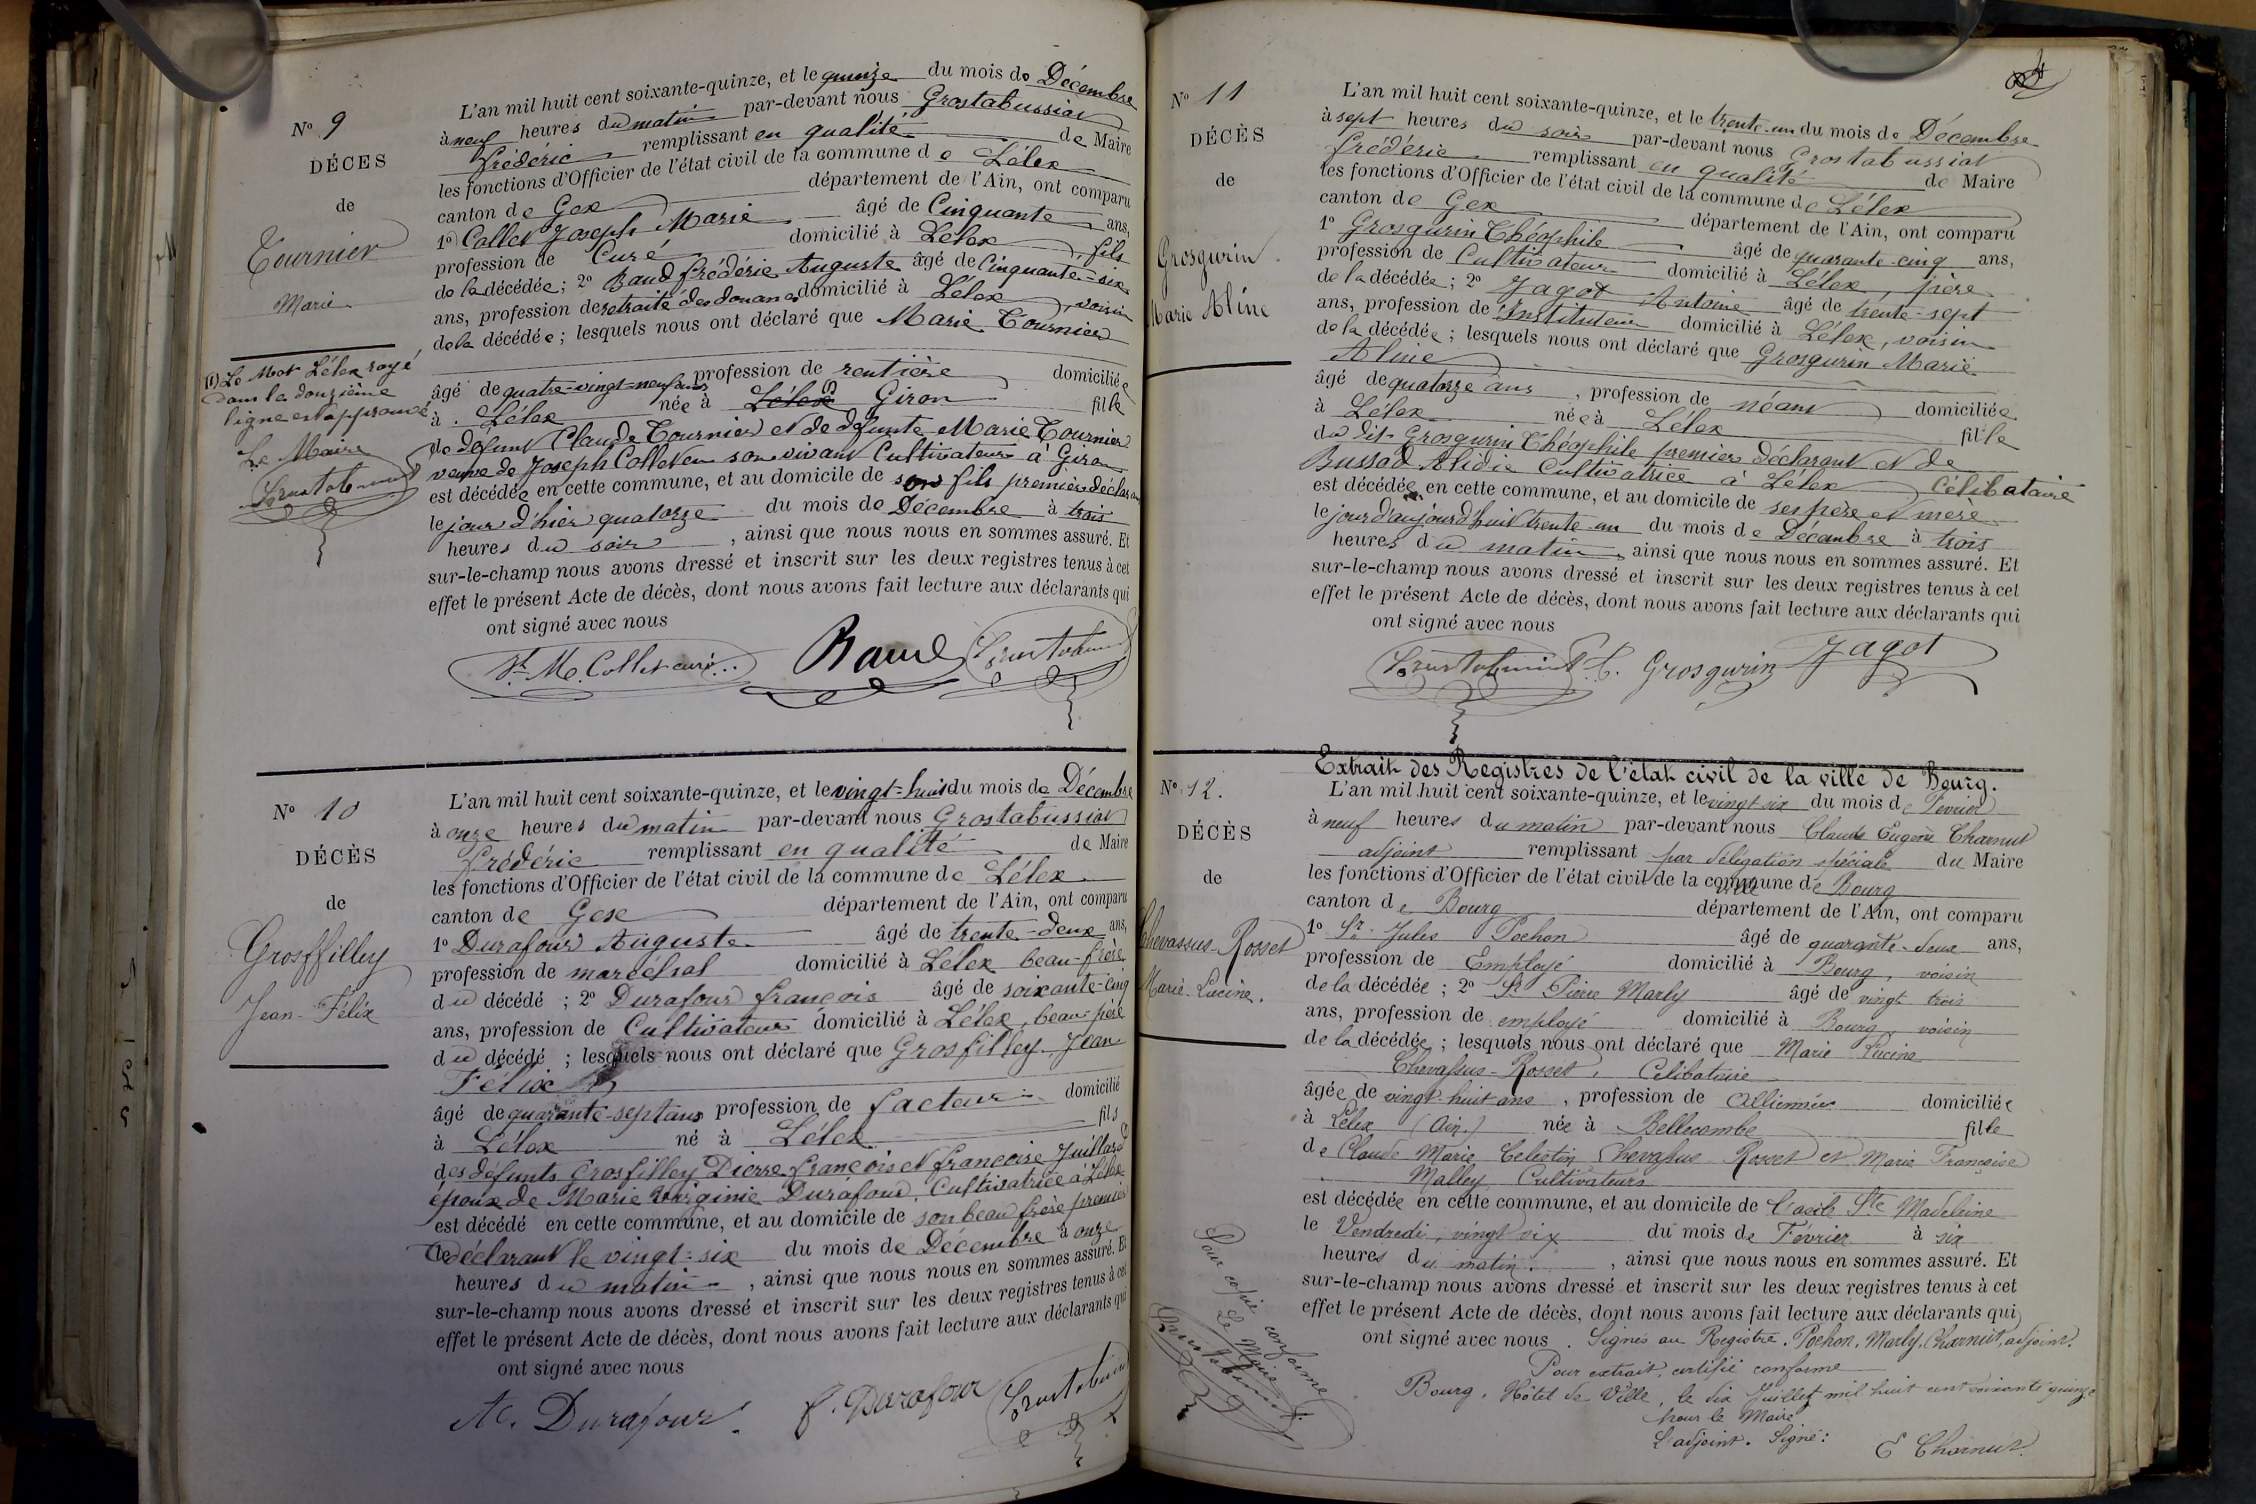 N° 9
DÉCES
de
Tournier
Marie
(1) Le Mot Lélex rayé
dans la douzième
ligne est approuvé
Le Maire
L'an mil huit cent soixante-quinze, et le quinze du mois de Décembre
à neuf heures du matin par-devant nous Grostabussiat
Frédéric remplissant en qualité de Maire
les fonctions d'Officier de l'état civil de la commune de Lélex
canton de Gex département de l'Ain, ont comparu
1° Collet Joseph Marie âgé de Cinquante ans,
profession de Curé domicilié à Lélex fils
de la décédée; 2° Baud frédéric Auguste âgé de Cinquante-six
ans, profession de retraité des douanes domicilié à Lélex, voisin
de la décédée; lesquels nous ont déclaré que Marie Tournier
âgé de quatre-vingt-neuf ans profession de rentière domiciliée
à Lélex née à Lélex (1) Giron fille
de défunt Claude Tournier et de défunte Marie Tournier
veuve de Joseph Collet en son vivant Cultivateur à Giron
est décédée en cette commune, et au domicile de son fils premier déclarant
le jour d'hier quatorze du mois de Décembre à trois
heures du soir, ainsi que nous nous en sommes assuré. Et
sur-le-champ nous avons dressé et inscrit sur les deux registres tenus à cet
effet le présent Acte de décès, dont nous avons fait lecture aux déclarants qui
ont signé avec nous
J. M. Collet curé Baud Grostabussiat
N° 10
DÉCÈS
de
Grosffilley
Jean-Félix
L'an mil huit cent soixante-quinze, et le vingt-huit du mois de Décembre
à onze heures du matin par-devant nous Grostabussiat
Frédéric remplissant en qualité de Maire
les fonctions d'Officier de l'état civil de la commune de Lélex
canton de Gex département de l'Ain, ont comparu
1° Durafour Auguste âgé de trente-deux ans,
profession de maréchal domicilié à Lélex beau-frère
du décédé; 2° Durafour françois âgé de soixante-cinq
ans, profession de Cultivateur domicilié à Lélex, beau-père
du décédé; lesquels nous ont déclaré que Grosfilley Jean
Félix
âgé de quarante-sept ans profession de facteur domicilié
à Lélex né à Lélex fils
des défunts Grosfilley Pierre françois et françoise Juillard
époux de Marie Virginie Durafour, Cultivatrice à Lélex
est décédé en cette commune, et au domicile de son beau frère premier
déclarant le vingt-six du mois de Décembre à onze
heures du matin, ainsi que nous nous en sommes assuré. Et
sur-le-champ nous avons dressé et inscrit sur les deux registres tenus à cet
effet le présent Acte de décès, dont nous avons fait lecture aux déclarants qui
ont signé avec nous
At. Durafour f. Durafour Grostabussiat
N° 11
DÉCÈS
de
Grosgurin
Marie Aline
L'an mil huit cent soixante-quinze, et le trente-un du mois de Décembre
à sept heures du soir par-devant nous Grostabussiat
frédéric remplissant en qualité de Maire
les fonctions d'Officier de l'état civil de la commune de Lélex
canton de Gex département de l'Ain, ont comparu
1° Grosgurin Théophile âgé de quarante-cinq ans,
profession de Cultivateur domicilié à Lélex, père
de la décédée; 2° Jagot Antoine âgé de trente-sept
ans, profession de Instituteur domicilié à Lélex, voisin
de la décédée; lesquels nous ont déclaré que Grosgurin Marie
Aline
âgé de quatorze ans, profession de néant domiciliée
à Lélex née à Lélex fille
du dit Grosgurin Théophile premier déclarant et de
Bussod Alidie Cultivatrice à Lélex Célibataire
est décédée en cette commune, et au domicile de ses père et mère
le jour d'aujourd'hui trente-un du mois de Décembre à trois
heures du matin, ainsi que nous nous en sommes assuré. Et
sur-le-champ nous avons dressé et inscrit sur les deux registres tenus à cet
effet le présent Acte de décès, dont nous avons fait lecture aux déclarants qui
ont signé avec nous
Grostabussiat T. Grosgurin Jagot
Extrait des Registres de l'état civil de la ville de Bourg.
N° 12.
DÉCÈS
de
Chevassus-Rosset
Marie-Lucine.
L'an mil huit cent soixante-quinze, et le vingt six du mois de Février
à neuf heures du matin par-devant nous Claude Eugène Charnut
adjoint remplissant par délégation spéciale du Maire
les fonctions d'Officier de l'état civil de la commune ville de Bourg
canton de Bourg département de l'Ain, ont comparu
1° Sr. Jules Pochon âgé de quarante-deux ans,
profession de Employé domicilié à Bourg, voisin
de la décédée; 2° Sr Pierre Marly âgé de vingt trois
ans, profession de employé domicilié à Bourg, voisin
de la décédée; lesquels nous ont déclaré que Marie Lucine
Chevassus-Rosset, Célibataire
âgée de vingt-huit ans, profession de domiciliée
à Lélex (Ain) née à Bellecombe fille
de Claude Marie Celestin Chevassus Rosset et Marie Françoise
Malley Cultivateurs
est décédée en cette commune, et au domicile de l'asile Ste Madeleine
le Vendredi, vingt six du mois de Février à six
heures du matin, ainsi que nous nous en sommes assuré. Et
sur-le-champ nous avons dressé et inscrit sur les deux registres tenus à cet
effet le présent Acte de décès, dont nous avons fait lecture aux déclarants qui
ont signé avec nous. Signés au Registre. Pochon, Marly, Charnut, adjoint.
Pour extrait certifié conforme
Bourg, Hôtel de Ville, le dix Juillet mil huit cent soixante quinze
pour le Maire
L'adjoint. Signé: E Charnut.
Pour copie conforme
Le Maire
Grostabussiat